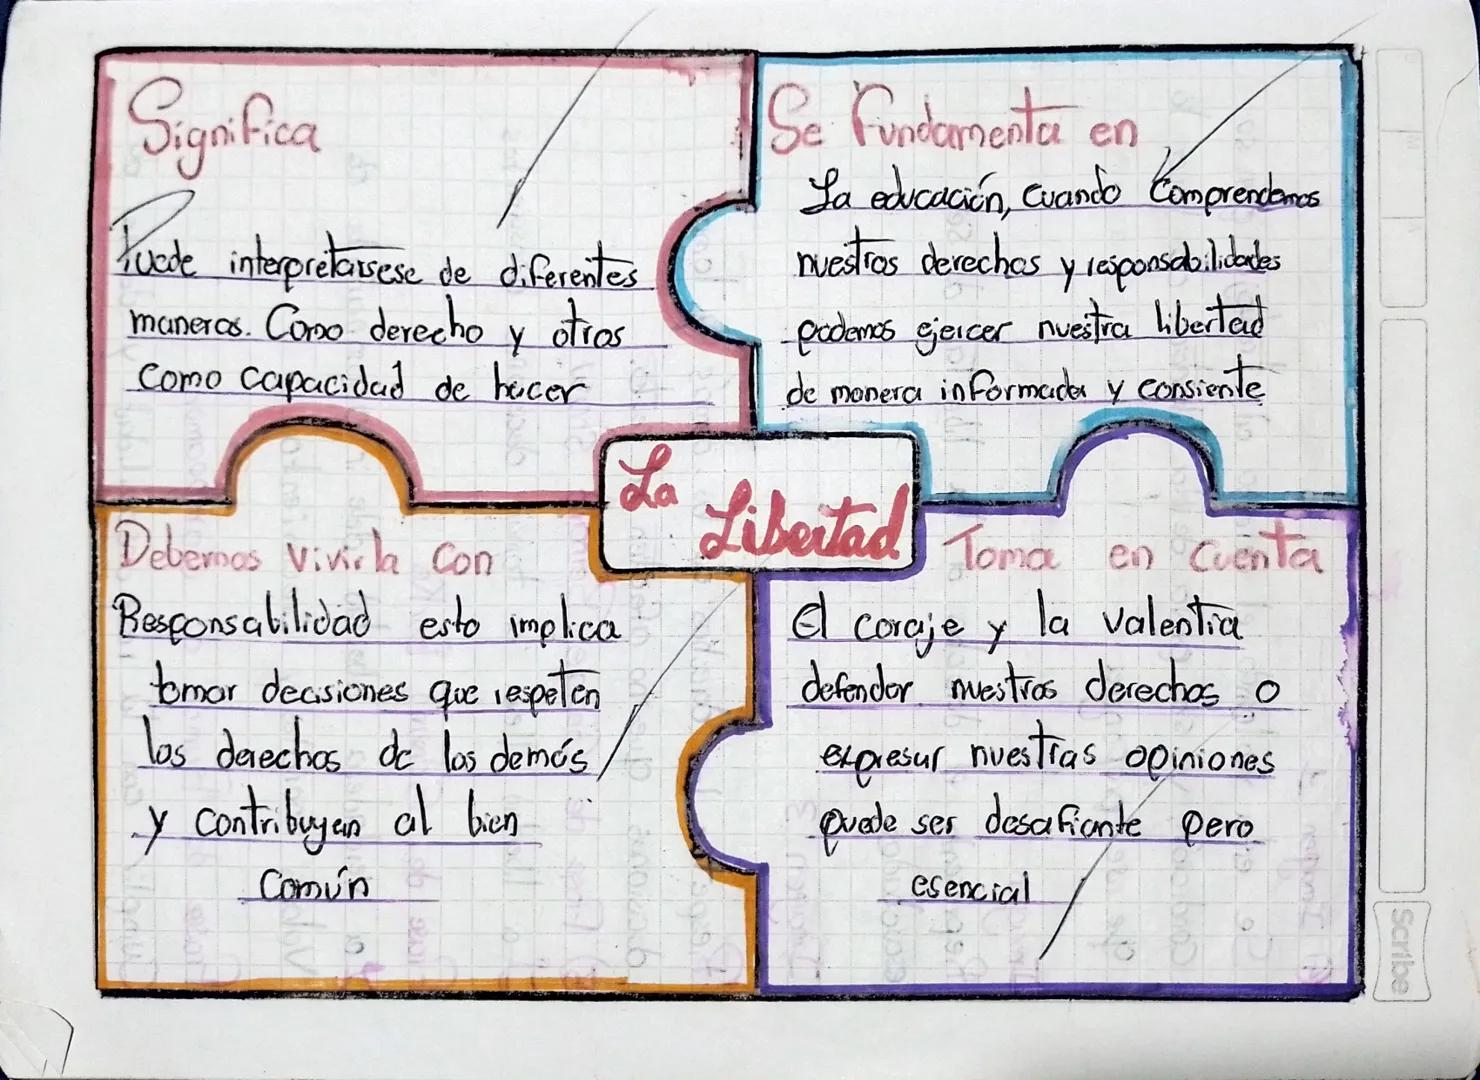 Significa
Puede interpretarsese de diferentes
maneras. Como derecho y otros
como capacidad de hacer
Se Fundamenta en
La educación, cuando Comprendemos
nuestros derechos y responsabilidades
podemos ejercer nuestra libertad
de manera informada y consiente
La
Libertad
Debemos Vivirla Con
Responsabilidad esto implica
tomar decisiones que respeten
los derechos de los demás
y contribuyen al bien
Común
Toma en Cuenta
El coraje y la Valentia
defender nuestros derechos o
expresar nuestras opiniones
puede ser desafiante pero
esencial
Scribe